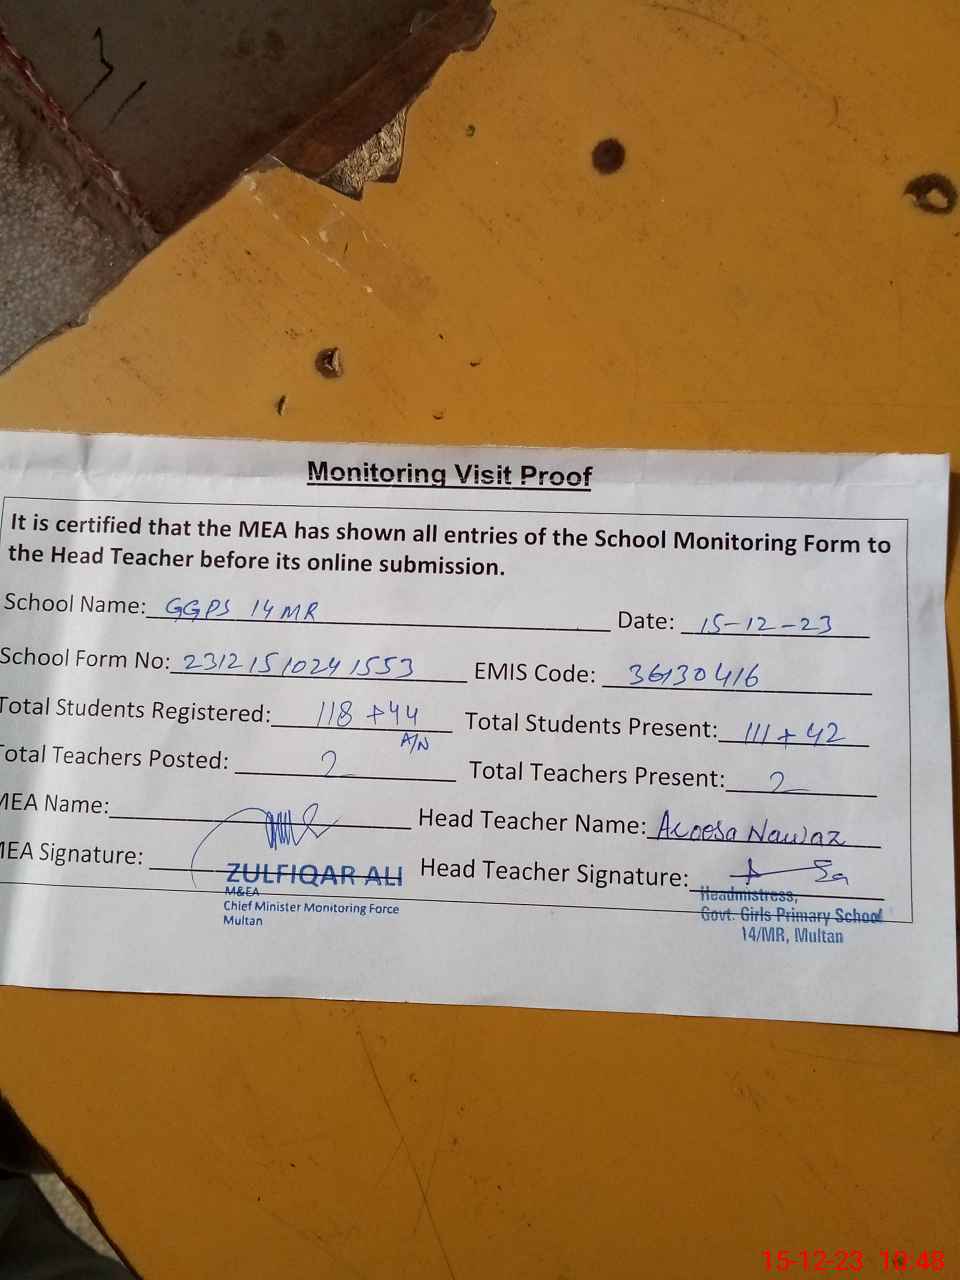 Monitoring Visit Proof
It is certified that the MEA has shown all entries of the School Monitoring Form to
the Head Teacher before its online submission.
School Name: GGPS 14 MR Date: 15-12-23
School Form No: 23121510241553 EMIS Code: 36130416
Total Students Registered: 118 +44 Total Students Present: 111 + 42
A/N
Total Teachers Posted: 2 Total Teachers Present: 2
MEA Name: Head Teacher Name: Nawaz
MEA Signature: Head Teacher Signature:
ZULFIQAR ALI
M&EA
Chief Minister Monitoring Force
Multan
Headmistress,
Govt. Girls Primary School
14/MR, Multan
15-12-23 10:48